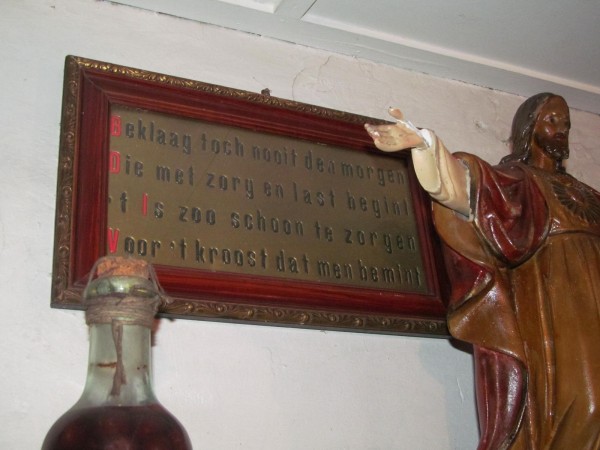 Beklaag toch nooit den morgen
Die met zorg en last begint
't Is zoo schoon te zorgen
Voor 't kroost dat men bemint